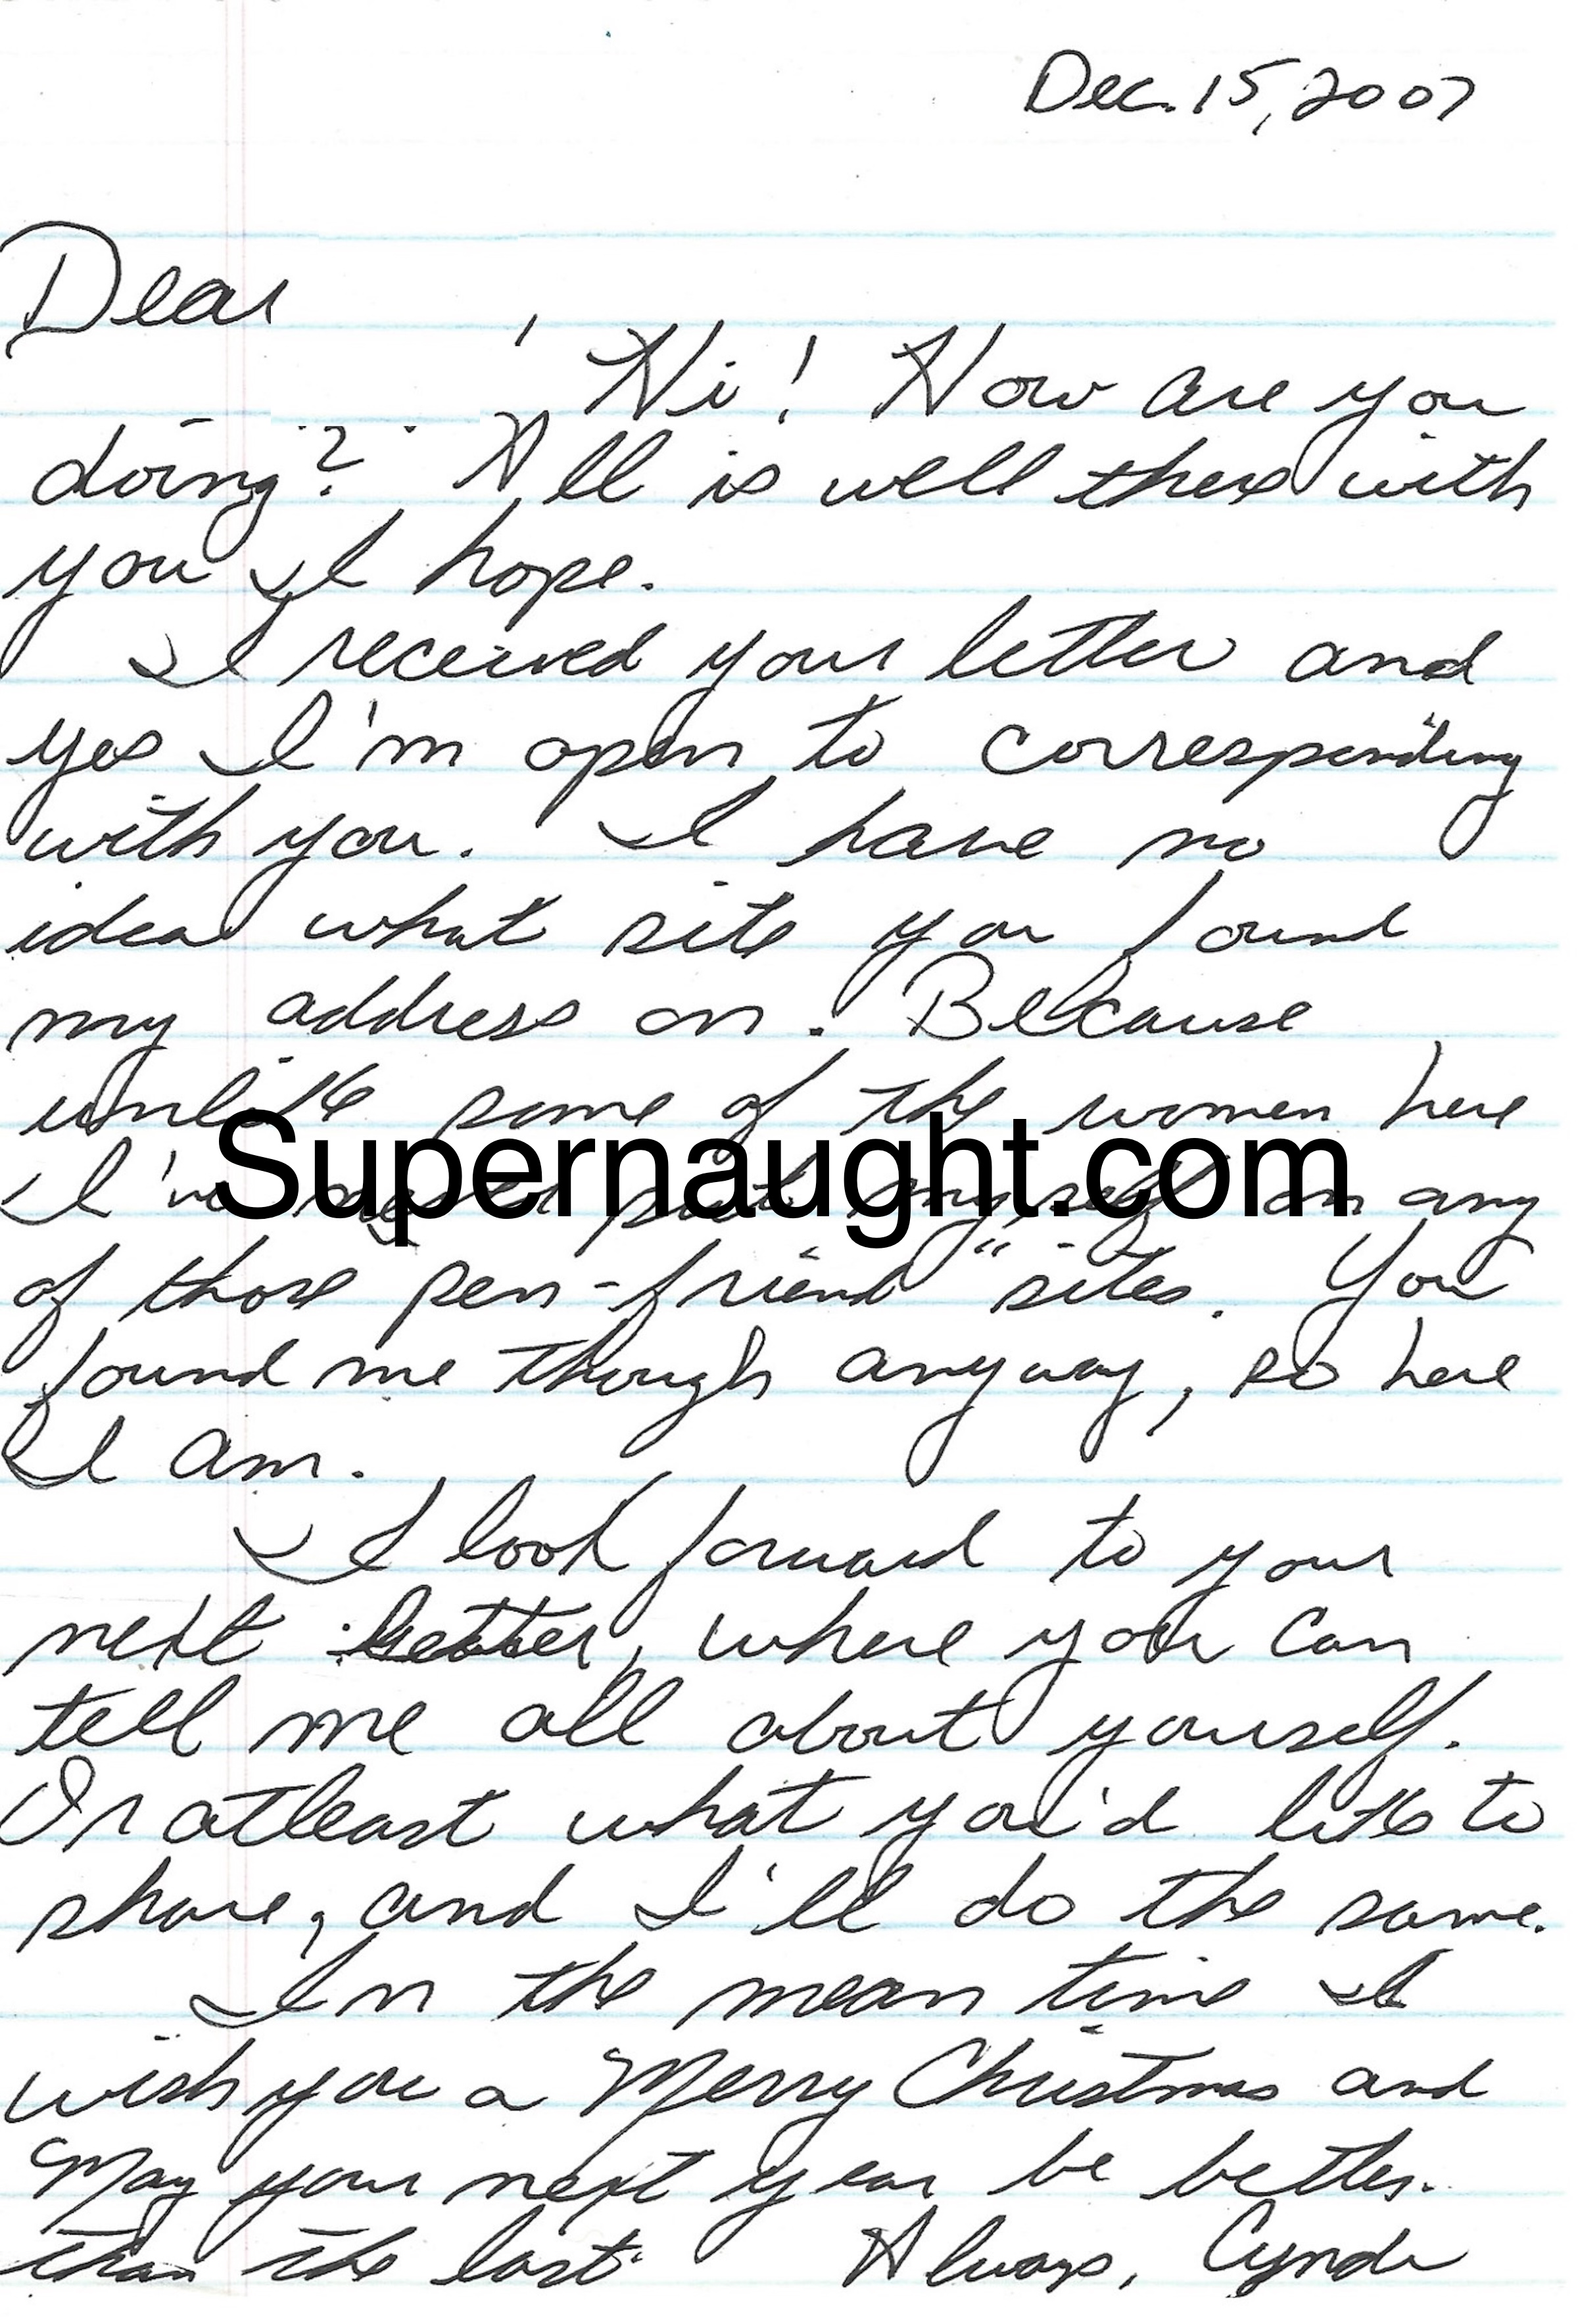 Dec. 15, 2007
Dear
, Hi! How are you
doing? All is well there with
you I hope.
I received your letter and
yes I'm open to corresponding
with you. I have no
idea what site you found
my address on. Because
unlike some of the women here
Supernaught.com
I've put myself on any
of those pen-friend "sites. You
found me though anyway, so here
I am.
I look forward to your
next letter, where you can
tell me all about yourself.
Or atleast what you'd like to
share, and I'll do the same.
In the mean time I
wish you a Merry Christmas and
May your next year be better.
than the last Always, Cynde